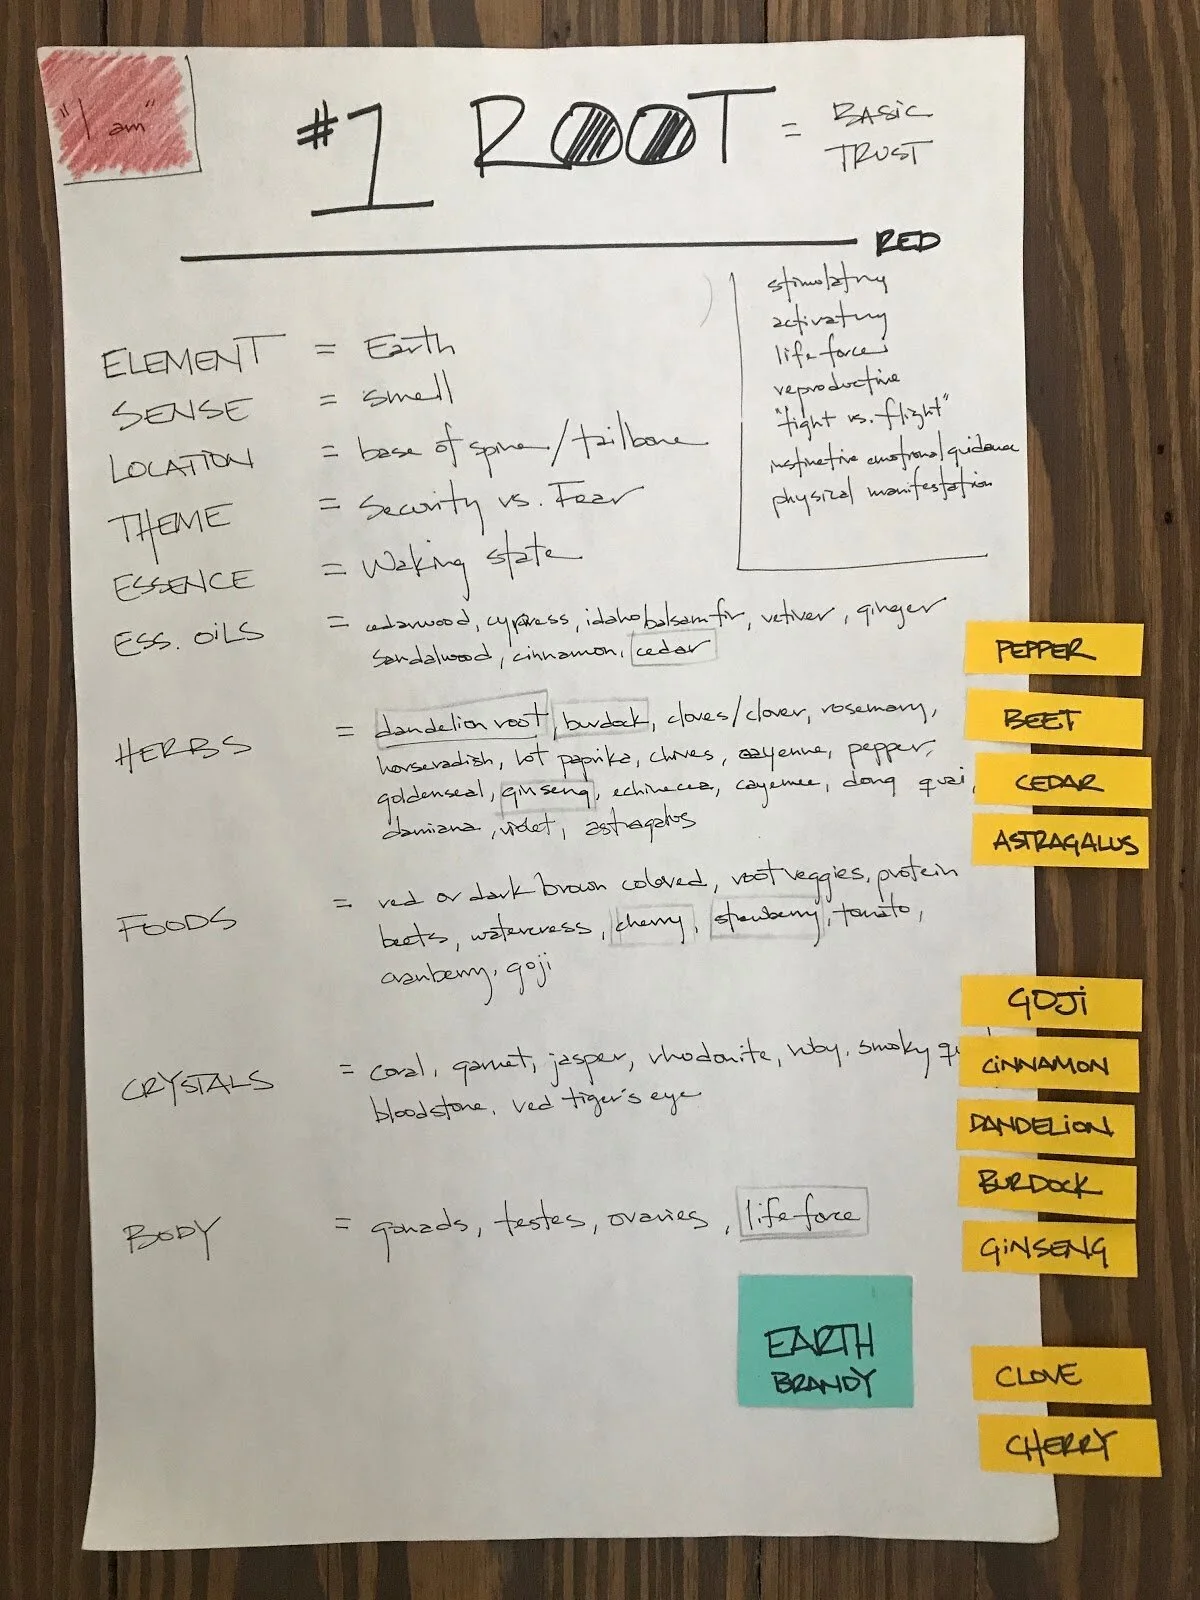 "I am"
#1 ROOT = BASIC
TRUST
RED
stimulating
activating
life force
reproductive
"fight vs. flight"
instinctive emotional guidance
physical manifestation
ELEMENT = Earth
SENSE = smell
LOCATION = base of spine/tailbone
THEME = Security vs. Fear
ESSENCE = Waking state
ESS. OILS = cedarwood, cypress, idaho balsam fir, vetiver, ginger
sandalwood, cinnamon, cedar
HERBS = dandelion root, burdock, cloves/clover, rosemary,
horseradish, hot paprika, chives, cayenne, pepper,
goldenseal, ginseng, echinecea, cayenne, dong quai,
damiana, violet, astragalus
FOODS = red or dark brown colored, root veggies, protein
beets, watercress, cherry, strawberry, tomato,
cranberry, goji
CRYSTALS = coral, garnet, jasper, rhodonite, ruby, smoky
bloodstone, red tiger's eye
BODY = gonads, testes, ovaries, life force
EARTH
BRANDY
PEPPER
BEET
CEDAR
ASTRAGALUS
GOJI
CINNAMON
DANDELION
BURDOCK
GINSENG
CLOVE
CHERRY